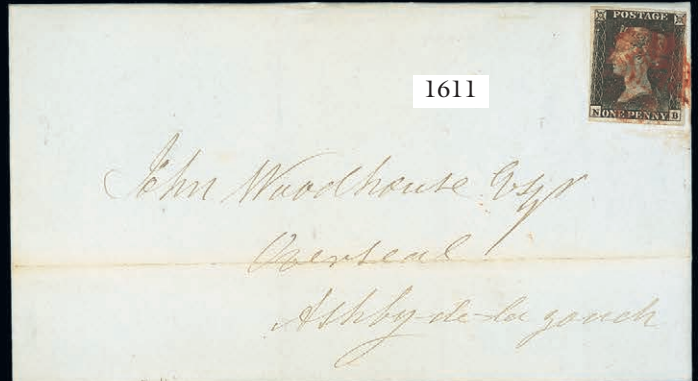 POSTAGE
N ONE PENNY D
1611
John Woodhouse Esqr
Overseal
Ashby-de-la zouch